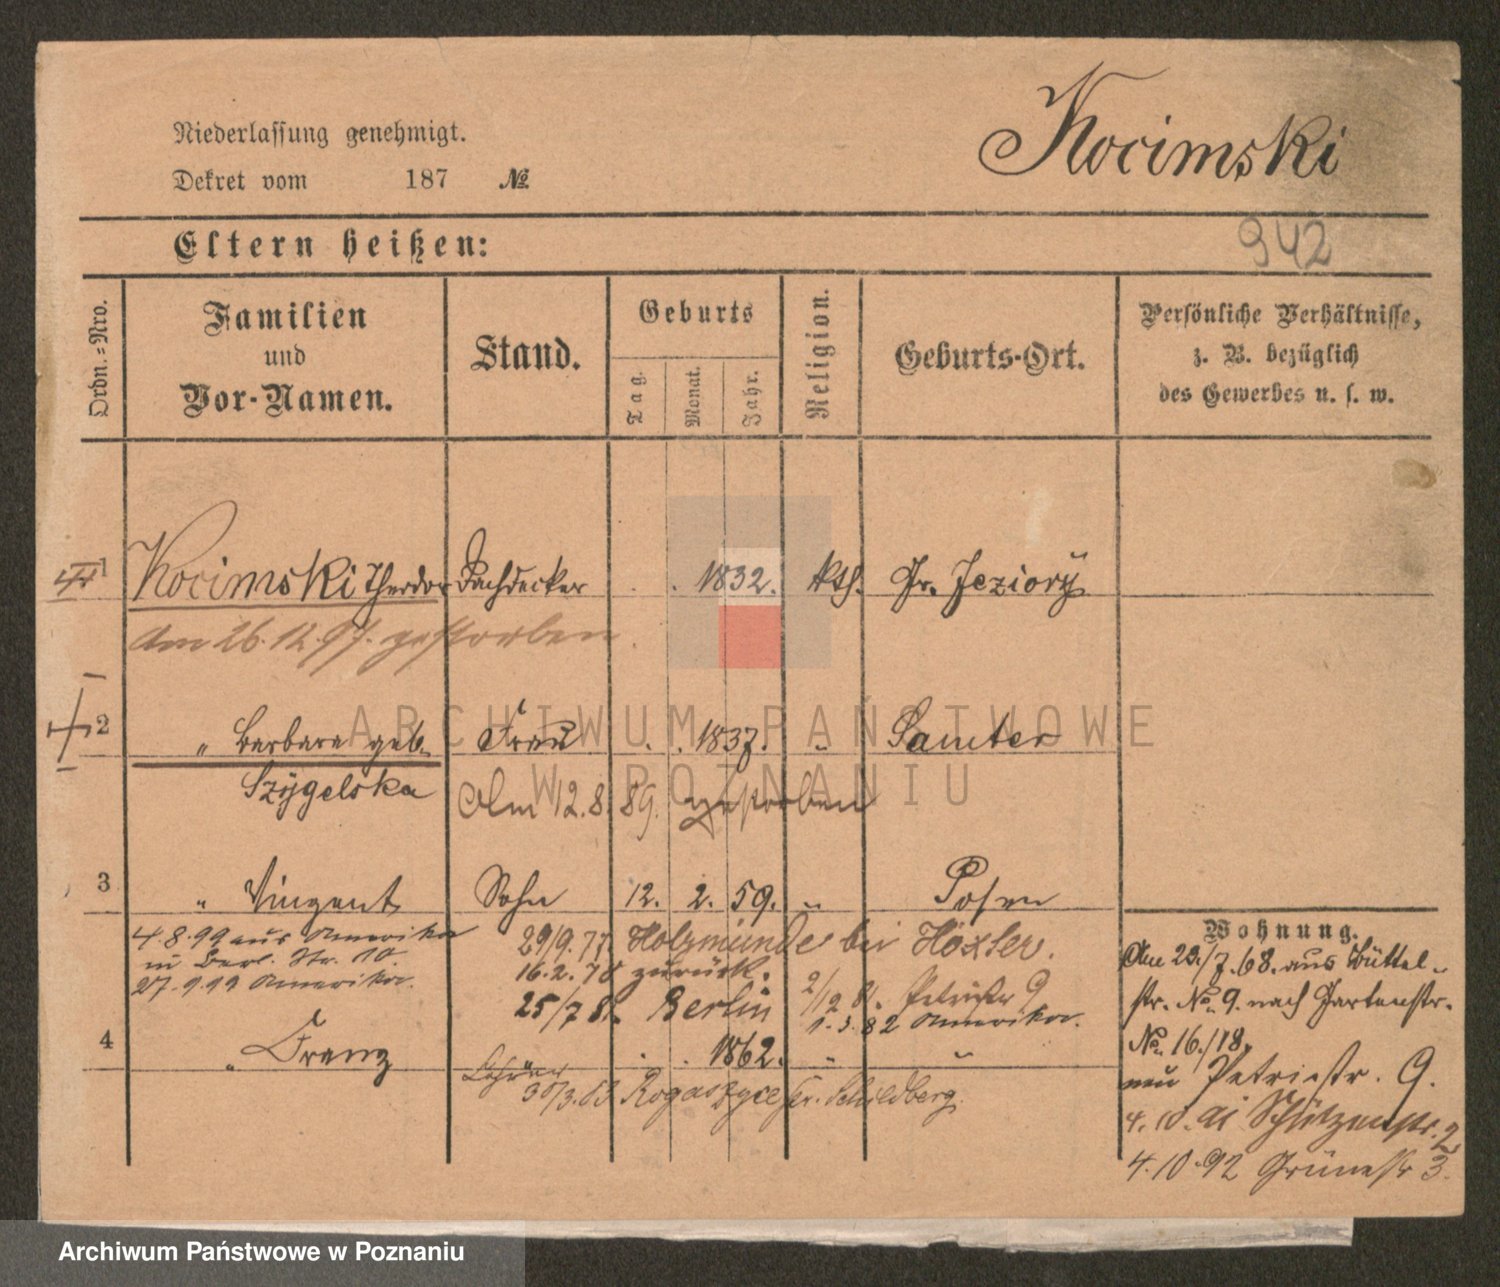 Niederlassung genehmigt.
Dekret vom 187 №
Kocimski
Eltern heißen:
942
Ordn.=Nro.
Familien
und
Vor-Namen.
Stand.
Geburts
Tag.
Monat.
Jahr.
Religion.
Geburts-Ort.
Persönliche Verhältnisse,
z. B. bezüglich
des Gewerbes u. s. w.
1 Kocimski Theodor Dachdecker . . 1832. kth. Gr. Jeziory
Am 26.12.97. gestorben
2 " Barbara geb. Frau . . 1837. " Samter
Szygelska Am 12.8.89. gestorben
3 " Vinzent Sohn 12. 2. 59. " Posen
4.8.99 aus Amerika
in Berl. Str. 10.
27.9.99 Amerika.
29/9.77 Holzmünde bei Höxter.
16.2.78 zurück.
25/7 81. Berlin
2/12 81. Petristr 9
1.3.82 Amerika.
4 " Franz . . 1862. " "
30/3.83 Rogaszyce Kr. Schildberg.
Wohnung.
Am 23./7.68. aus Büttel-
str. No. 9. nach Gartenstr.
No. 16./18.
neu Petristr. 9.
4.10.91 Schützenstr. 2
4.10.92 Grünestr 3.
ARCHIWUM PAŃSTWOWE
W POZNANIU
Archiwum Państwowe w Poznaniu